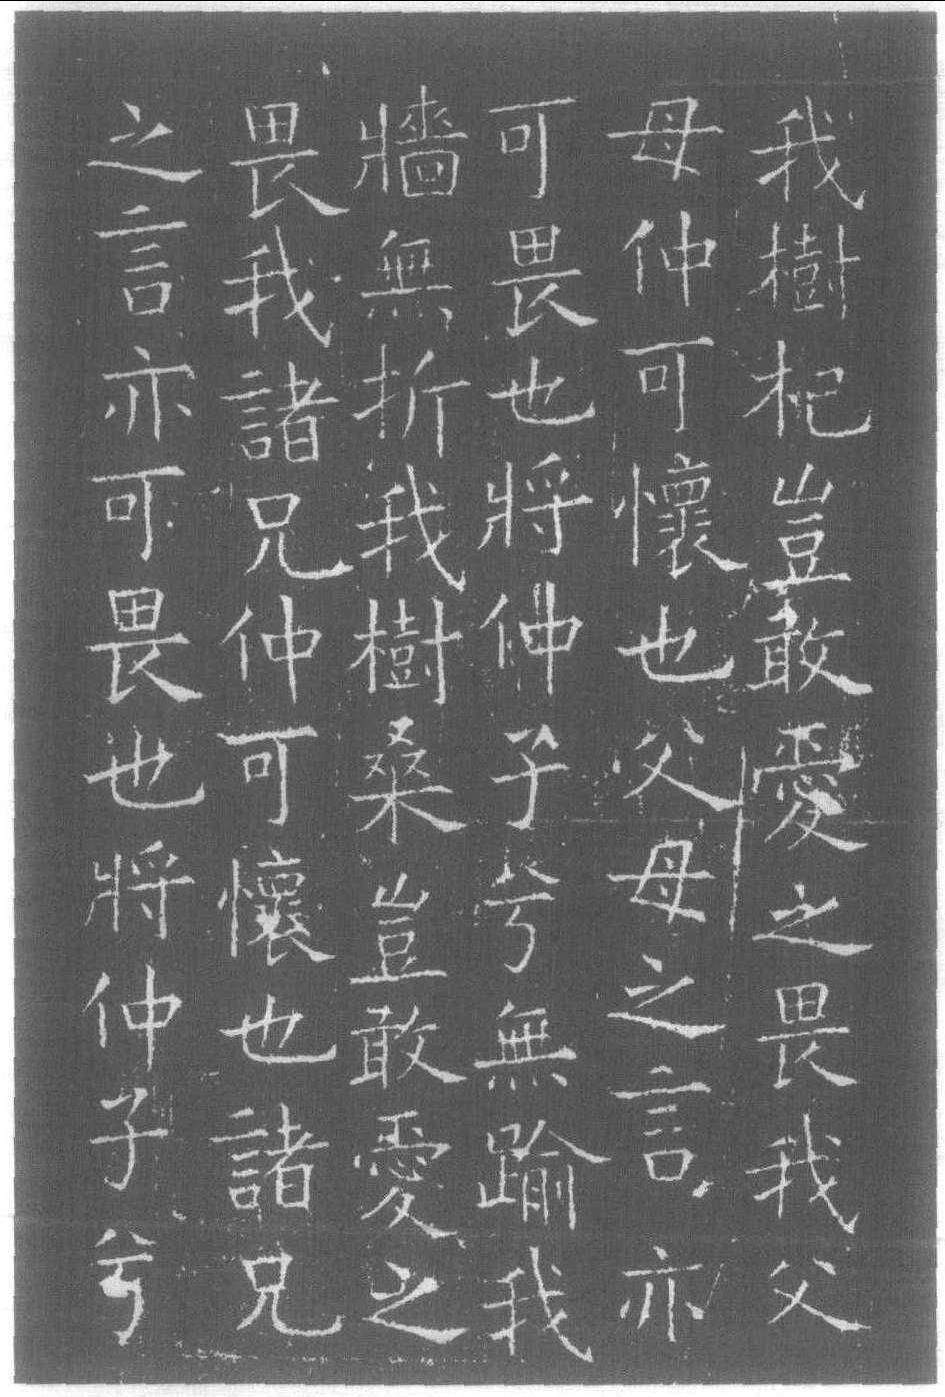 我樹杞豈敢愛之畏我父
母仲可懷也父母之言亦
可畏也將仲子兮無踰我
牆無折我樹桑豈敢愛之
畏我諸兄仲可懷也諸兄
之言亦可畏也將仲子兮